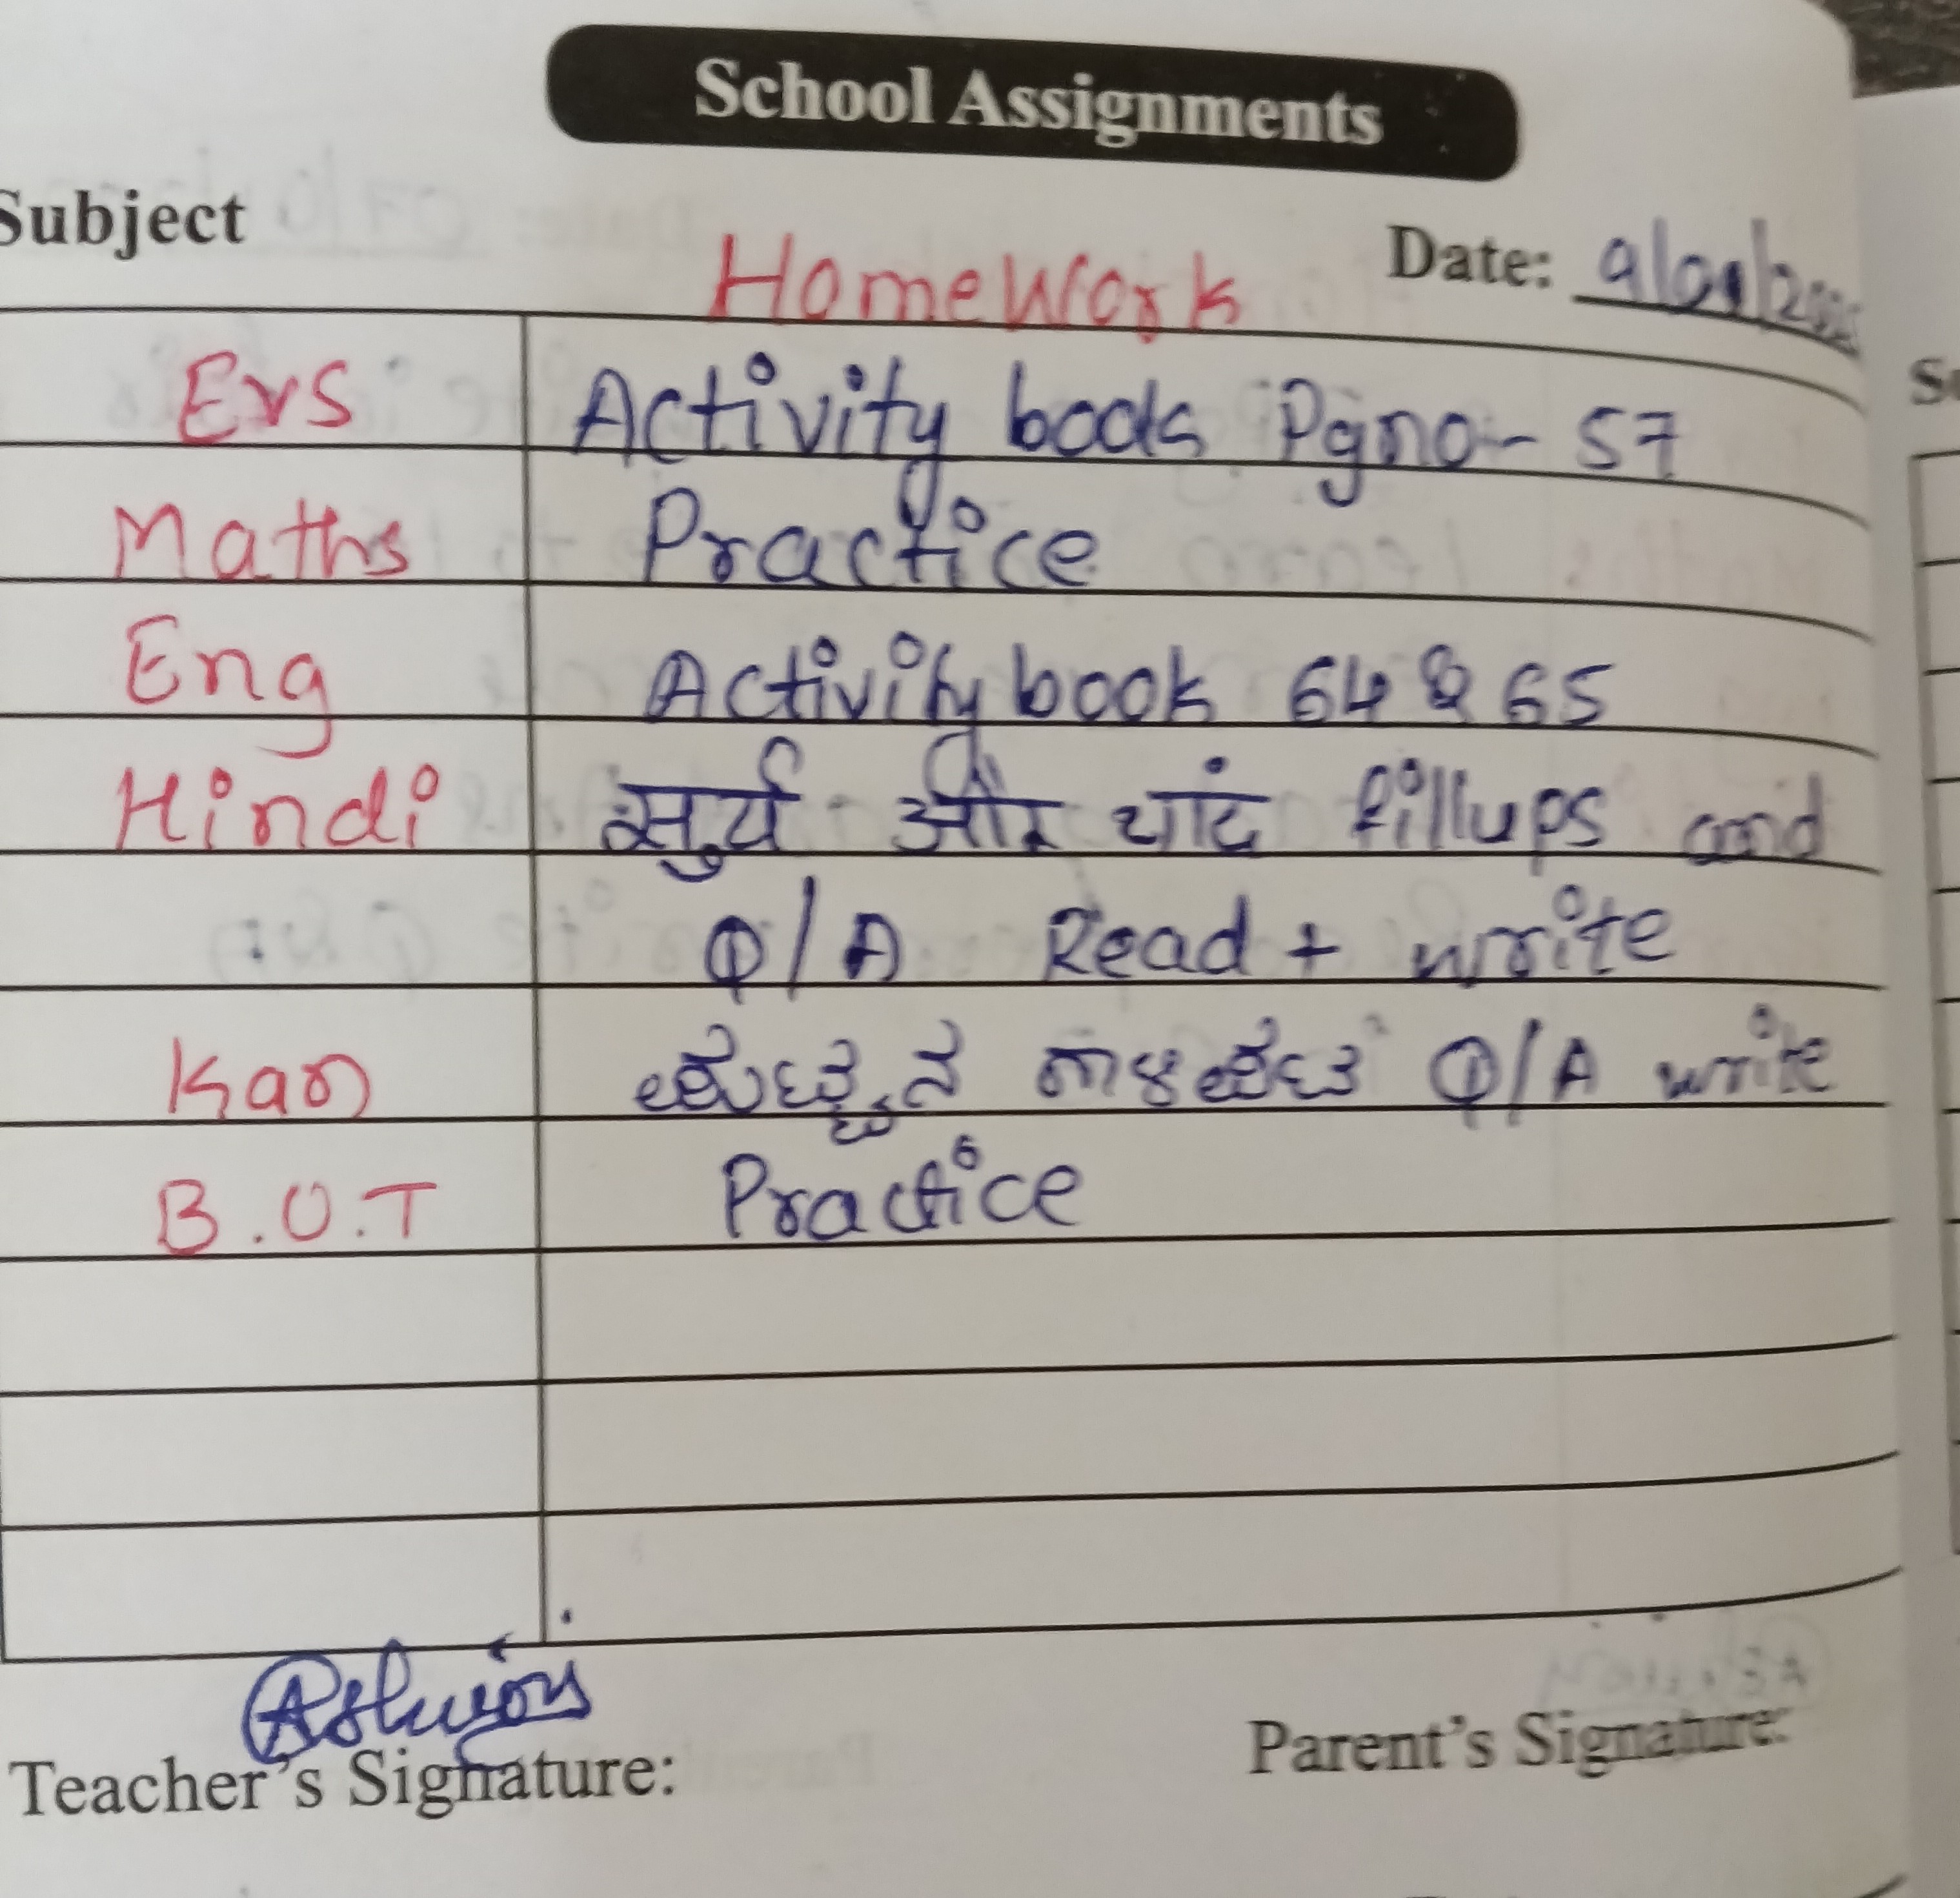 School Assignments
Subject
Date:
HomeWork
Evs Activity book Pgno - 57
Maths Practice
Eng Activity book 64 & 65
Hindi सुर्य और चांद fillups and
Q/A Read + write
Kan ಪುಟ್ಟನ Q/A write
B.O.T Practice
Teacher's Signature:
Parent's Signature: